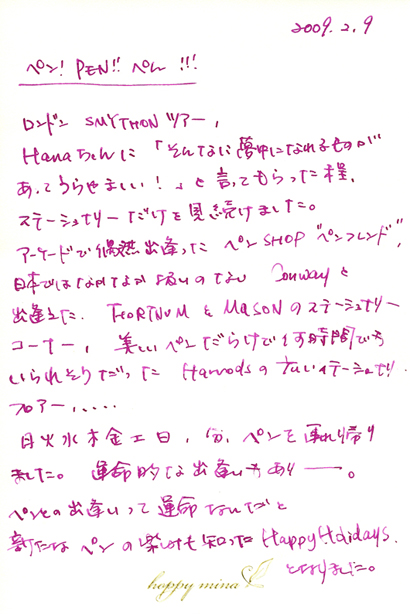 2009.2.9
ペン! PEN!! ペん !!!
ロンドン SMYTHONツアー,
Hanaちゃんに「そんなに夢中になれるものが
あってうらやましい!」と言ってもらった程、
ステーショナリーだけを見続けました。
アーケードで偶然出逢った ペンSHOP "ペンフレンド",
日本ではなかなか扱いのない Conwayと
出逢えた. FORTNUM & MASONのステーショナリー
コーナー, 美しいペンだらけで何時間でも
いられそうだった Harrodsの広いステーショナリー
フロアー,.....
月火水木金土日, 分, ペンを連れ帰り
ました。運命的な出逢いもあり——。
ペンとの出逢いって運命なんだと
新たなペンの楽しみも知った Happy Holidays.
となりました。
happy mina